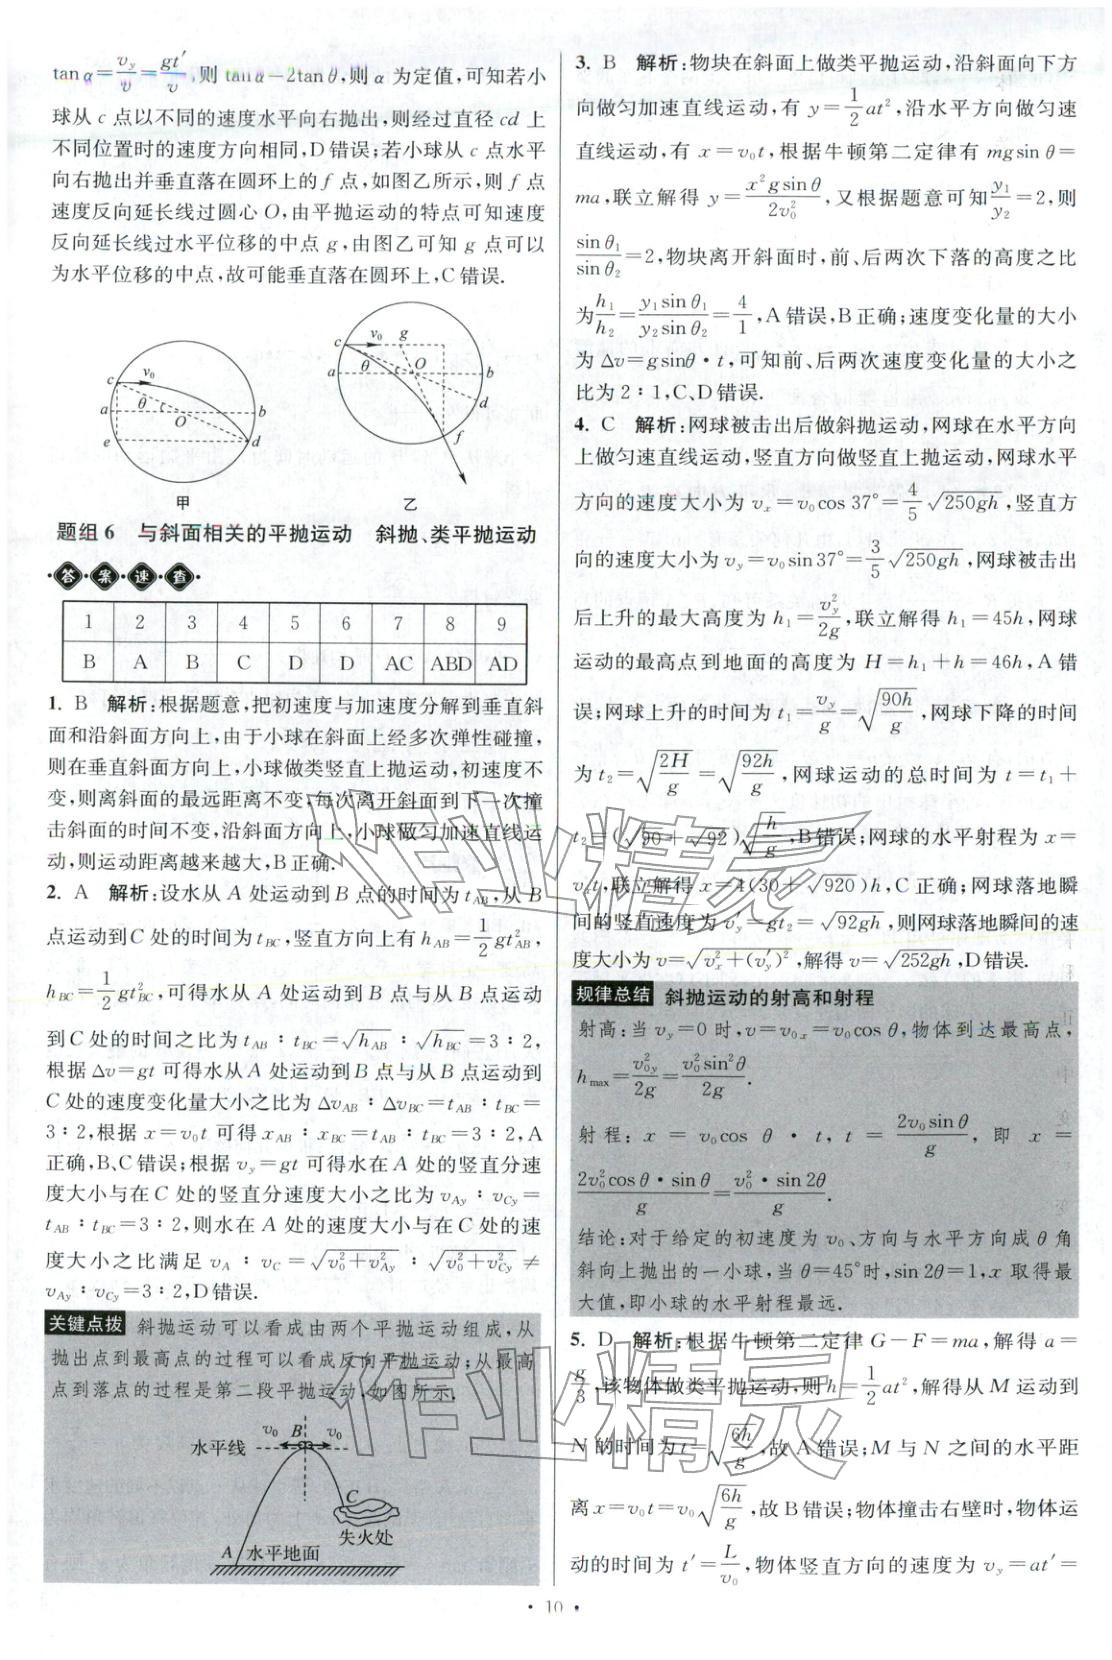 tanα=v_y/v=gt′/v,则 tanα=2tanθ,则 α 为定值,可知若小
球从 c 点以不同的速度水平向右抛出,则经过直径 cd 上
不同位置时的速度方向相同,D 错误;若小球从 c 点水平
向右抛出并垂直落在圆环上的 f 点,如图乙所示,则 f 点
速度反向延长线过圆心 O,由平抛运动的特点可知速度
反向延长线过水平位移的中点 g,由图乙可知 g 点可以
为水平位移的中点,故可能垂直落在圆环上,C 错误.
c v₀ θ a O b e d
甲
c v₀ g θ O a b d f
乙
题组 6 与斜面相关的平抛运动 斜抛、类平抛运动
答案速查
1 2 3 4 5 6 7 8 9
B A B C D D AC ABD AD
1. B 解析:根据题意,把初速度与加速度分解到垂直斜
面和沿斜面方向上,由于小球在斜面上经多次弹性碰撞,
则在垂直斜面方向上,小球做类竖直上抛运动,初速度不
变,则离斜面的最远距离不变,每次离开斜面到下一次撞
击斜面的时间不变,沿斜面方向上,小球做匀加速直线运
动,则运动距离越来越大,B 正确.
2. A 解析:设水从 A 处运动到 B 点的时间为 t_AB,从 B
点运动到 C 处的时间为 t_BC,竖直方向上有 h_AB=1/2 gt²_AB,
h_BC=1/2 gt²_BC,可得水从 A 处运动到 B 点与从 B 点运动
到 C 处的时间之比为 t_AB∶t_BC=√h_AB∶√h_BC=3∶2,
根据 Δv=gt 可得水从 A 处运动到 B 点与从 B 点运动到
C 处的速度变化量大小之比为 Δv_AB∶Δv_BC=t_AB∶t_BC=
3∶2,根据 x=v₀t 可得 x_AB∶x_BC=t_AB∶t_BC=3∶2,A
正确,B、C 错误;根据 v_y=gt 可得水在 A 处的竖直分速
度大小与在 C 处的竖直分速度大小之比为 v_Ay∶v_Cy=
t_AB∶t_BC=3∶2,则水在 A 处的速度大小与在 C 处的速
度大小之比满足 v_A∶v_C=√(v₀²+v²_Ay)∶√(v₀²+v²_Cy)≠
v_Ay∶v_Cy=3∶2,D 错误.
关键点拨 斜抛运动可以看成由两个平抛运动组成,从
抛出点到最高点的过程可以看成反向平抛运动;从最高
点到落点的过程是第二段平抛运动,如图所示.
水平线 v₀ B v₀
C
失火处
A 水平地面
3. B 解析:物块在斜面上做类平抛运动,沿斜面向下方
向做匀加速直线运动,有 y=1/2 at²,沿水平方向做匀速
直线运动,有 x=v₀t,根据牛顿第二定律有 mgsin θ=
ma,联立解得 y=x²gsinθ/2v₀²,又根据题意可知 y₁/y₂=2,则
sin θ₁/sin θ₂=2,物块离开斜面时,前、后两次下落的高度之比
为 h₁/h₂=y₁sin θ₁/y₂sin θ₂=4/1,A 错误,B 正确;速度变化量的大小
为 Δv=gsinθ·t,可知前、后两次速度变化量的大小之
比为 2∶1,C、D 错误.
4. C 解析:网球被击出后做斜抛运动,网球在水平方向
上做匀速直线运动,竖直方向做竖直上抛运动,网球水平
方向的速度大小为 v_x=v₀cos 37°=4/5 √250gh,竖直方
向的速度大小为 v_y=v₀sin37°=3/5 √250gh,网球被击出
后上升的最大高度为 h₁=v_y²/2g,联立解得 h₁=45h,网球
运动的最高点到地面的高度为 H=h₁+h=46h,A 错
误;网球上升的时间为 t₁=v_y/g=√(90h/g),网球下降的时间
为 t₂=√(2H/g)=√(92h/g),网球运动的总时间为 t=t₁+
t₂=(√90+√92)√(h/g),B 错误;网球的水平射程为 x=
v_xt,联立解得 x=4(30+√920)h,C 正确;网球落地瞬
间的竖直速度为 v_y′=gt₂=√92gh,则网球落地瞬间的速
度大小为 v=√(v_x²+(v_y′)²),解得 v=√252gh,D 错误.
规律总结 斜抛运动的射高和射程
射高:当 v_y=0 时,v=v₀ₓ=v₀cos θ,物体到达最高点,
h_max=v²₀y/2g=v₀²sin²θ/2g.
射程:x=v₀cos θ·t,t=2v₀sin θ/g,即 x=
2v₀²cosθ·sinθ/g=v₀²·sin 2θ/g.
结论:对于给定的初速度为 v₀、方向与水平方向成 θ 角
斜向上抛出的一小球,当 θ=45°时,sin 2θ=1,x 取得最
大值,即小球的水平射程最远.
5. D 解析:根据牛顿第二定律 G-F=ma,解得 a=
g/3,该物体做类平抛运动,则 h=1/2 at²,解得从 M 运动到
N 的时间为 t=√(6h/g),故 A 错误;M 与 N 之间的水平距
离 x=v₀t=v₀√(6h/g),故 B 错误;物体撞击右壁时,物体运
动的时间为 t′=L/v₀,物体竖直方向的速度为 v_y=at′=
· 10 ·
作业精灵
作业精灵